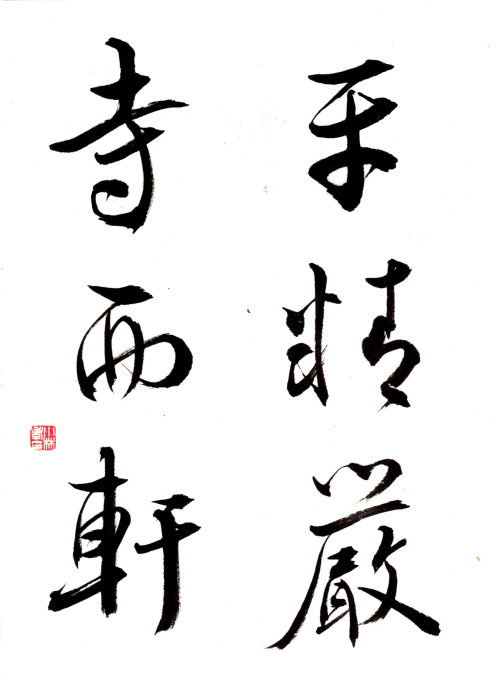 平精嚴
寺西軒